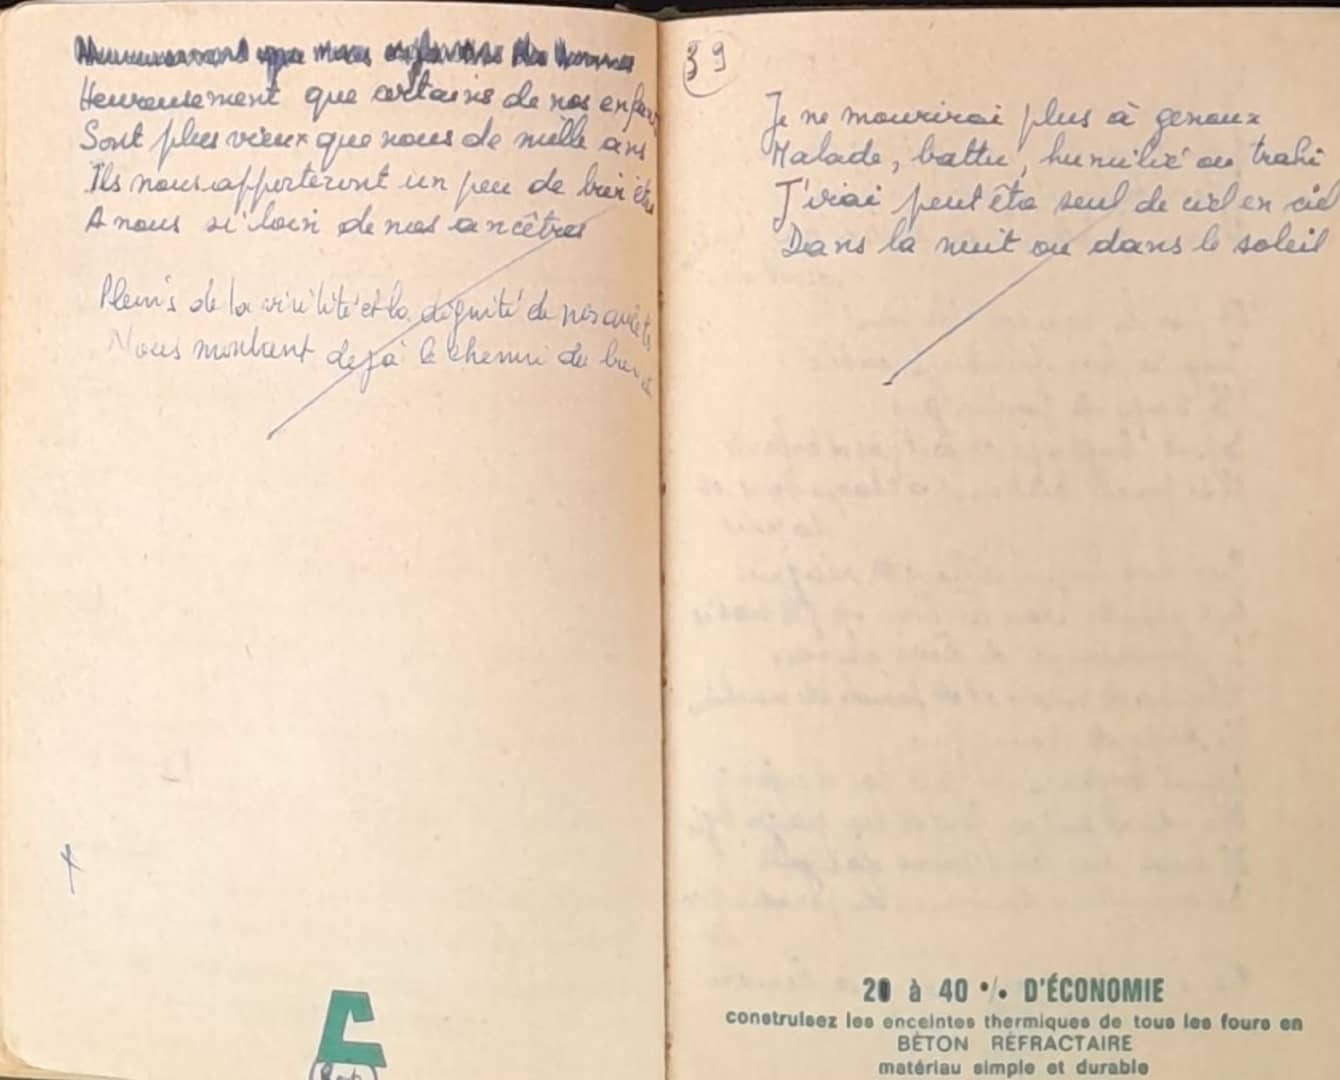 Heureusement que nos enfants
Heureusement que certains de nos enfants
Sont plus vieux que nous de mille ans
Ils nous apporteront un peu de bien être
A nous si loin de nos ancêtres
Pleins de la virilité et la dignité de nos
Nous montant dejà le chemin du
39
Je ne mourirai plus à genoux
Malade, battu, humilié ou trahi
J'irai peut être seul de ciel en ciel
Dans la nuit ou dans le soleil
20 à 40 % D'ÉCONOMIE
construisez les enceintes thermiques de tous les fours en
BÉTON RÉFRACTAIRE
matériau simple et durable